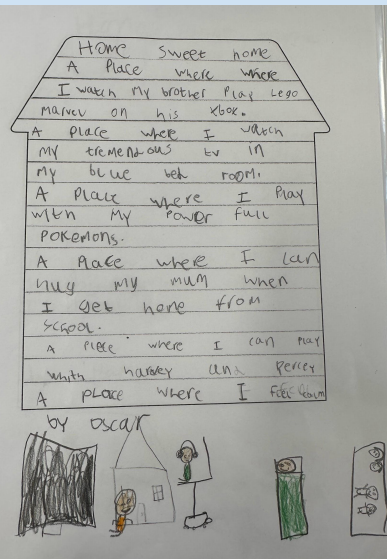 Home sweet home
A place where where
I watch my brother play Lego
marvel on his xbox.
A place where I watch
my tremendous tv in
my blue beh room.
A place where I play
with my power full
pokemons.
A place where I can
hug my mum when
I get home from
school.
A plece where I can play
whith harvey and percey
A place where I feel calm
by oscar